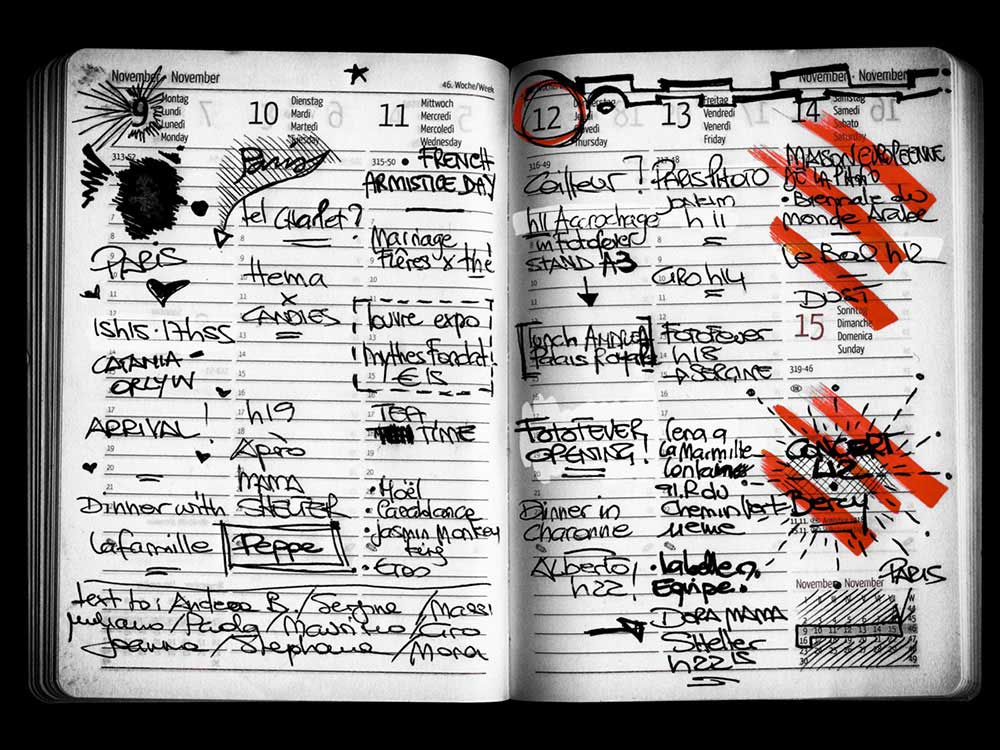 November · November
46. Woche/Week
9
Montag
Lundi
Lunedì
Monday
313-52
PARIS
15h15·17h55
CATANIA -
ORLY W
ARRIVAL !
Dinner with
la famille
10
Dienstag
Mardi
Martedì
Tuesday
tel Charlet?
Hema
x
CANDLES
h19
Apèro
MAMA
SHELTER
Peppe
11
Mittwoch
Mercredi
Mercoledì
Wednesday
315-50
• FRENCH
ARMISTICE DAY
Mariage
Frères x thé
louvre expo
mythes Fondat!
€15
TEA
TIME
• Noël
• Casablanca
• Jasmin Monkey
King
• Eros
text to: Andrea B. / Sergine / Massi
Giuliano / Paola / Maurizio / Ciro
Joanna / Stephane / Mona
12
Donnerstag
Jeudi
Giovedì
Thursday
316-49
Coiffeur ?
h11 Accrochage
in Fotofever
STAND A3
lunch ANDREA
Palais Royal
FOTOFEVER
OPENING !
Dinner in
Charonne
Alberto !
h22
13
Freitag
Vendredi
Venerdì
Friday
PARISPHOTO
h11
CIRO h14
FOTOFEVER
h18
SERGINE
Cena a
La Marmille
91. R du
Chemin Vert
• la belle
Equipe.
DORA MAMA
Shelter
h22 15
November · November
14
Samstag
Samedi
Sabato
Saturday
MAISON EUROPEENNE
DE LA PHOTO
• Biennale du
monde Arabe
Le Bal h12
DUST
15
Sonntag
Dimanche
Domenica
Sunday
319-46
CONCERT
U2
Bercy
PARIS
November · November
9 10 11 12 13 14 15
16